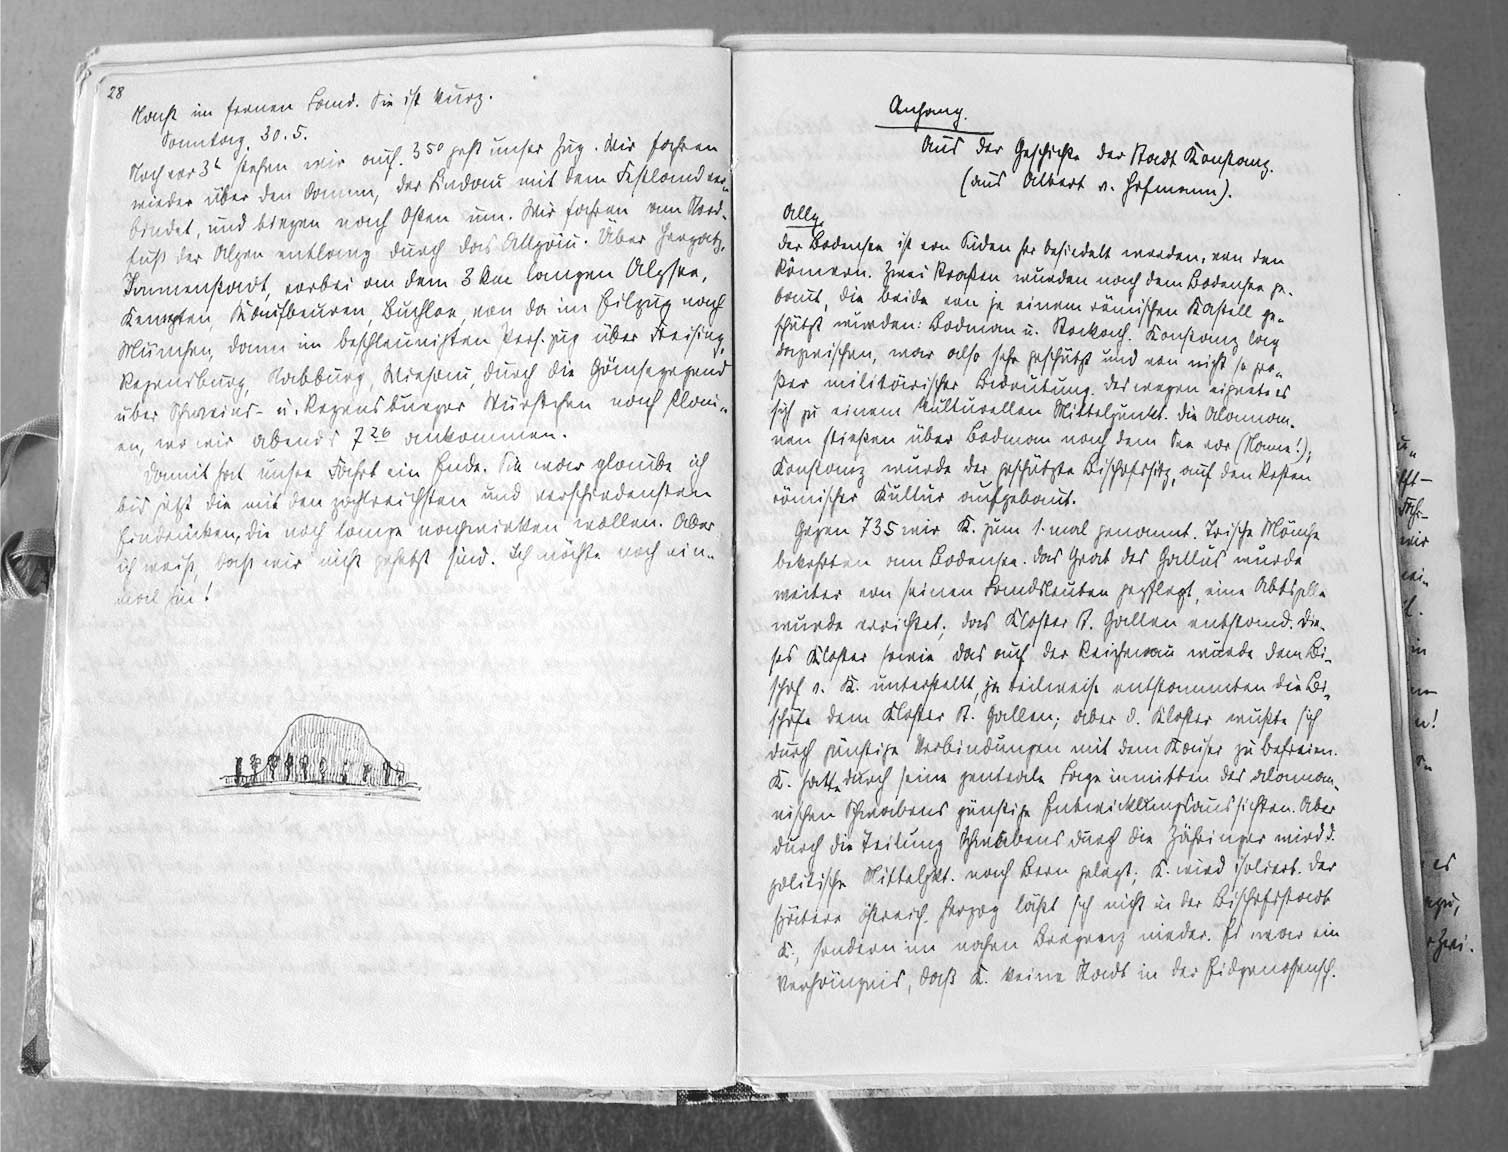 28
Nacht im fernen Land. Sie ist kurz.
Sonntag, 30.5.
Noch vor 3h stehen wir auf. 3 50 geht unser Zug. Wir fahren
wieder über den Damm, der Lindau mit dem Festland ver-
bindet, und biegen nach Osten um. Wir fahren am Nord-
fuß der Alpen entlang durch das Allgäu. Über Hergatz,
Immenstadt, vorbei an dem 3 km langen Alpsee,
Kempten, Kaufbeuren, Buchloe, von da im Eilzug nach
München, dann im beschleunigten Pers.zug über Freising,
Regensburg, Nabburg, Wiesau, durch die Gänsegegend
über Schweins- u. Regensburger Würstchen nach Plau-
en, wo wir abends 7 26 ankommen.
Damit hat unsre Fahrt ein Ende. Sie war glaube ich
bis jetzt die mit den zahlreichsten und verschiedensten
Eindrücken, die noch lange nachwirken wollen. Aber
ich weiß, daß wir nicht gehetzt sind. Ich möchte noch ein-
mal hin!
Anhang.
Aus der Geschichte der Stadt Konstanz.
(aus Albert v. Hofmann).
Allg.
Der Bodensee ist von Süden her besiedelt worden, von den
Römern. Zwei Straßen wurden nach dem Bodensee ge-
baut, die beide von je einem römischen Kastell ge-
schützt wurden: Bodman u. Stockach. Konstanz lag
dazwischen, war also sehr geschützt und von nicht so gro-
ßer militärischer Bedeutung. Deswegen eignete es
sich zu einem kulturellen Mittelpunkt. Die Alaman-
nen stießen über Bodman nach dem See vor (Name!);
Konstanz wurde der geschützte Bischofssitz, auf den Resten
römischer Kultur aufgebaut.
Gegen 735 wir K. zum 1. mal genannt. Irische Mönche
bekehrten am Bodensee. Das Grab des Gallus wurde
weiter von seinen Landsleuten gepflegt, eine Abtszelle
wurde errichtet; das Kloster St. Gallen entstand. Die-
ses Kloster sowie das auf der Reichenau wurde dem Bi-
schof v. K. unterstellt, ja teilweise entstammten die Bi-
schöfe dem Kloster St. Gallen; aber d. Kloster wußte sich
durch günstige Verbindungen mit dem Kaiser zu befreien.
K. hatte durch seine zentrale Lage inmitten des alaman-
nischen Schwabens günstige Entwicklungsaussichten. Aber
durch die Teilung Schwabens durch die Zähringer wird d.
politische Mittelpkt. nach Bern gelegt; K. wird isoliert. Der
spätere österreich. Herzog läßt sich nicht in der Bischofsstadt
K., sondern im nahen Bregenz nieder. Es war ein
Verhängnis, daß K. keine Stadt in der Eidgenossensch.